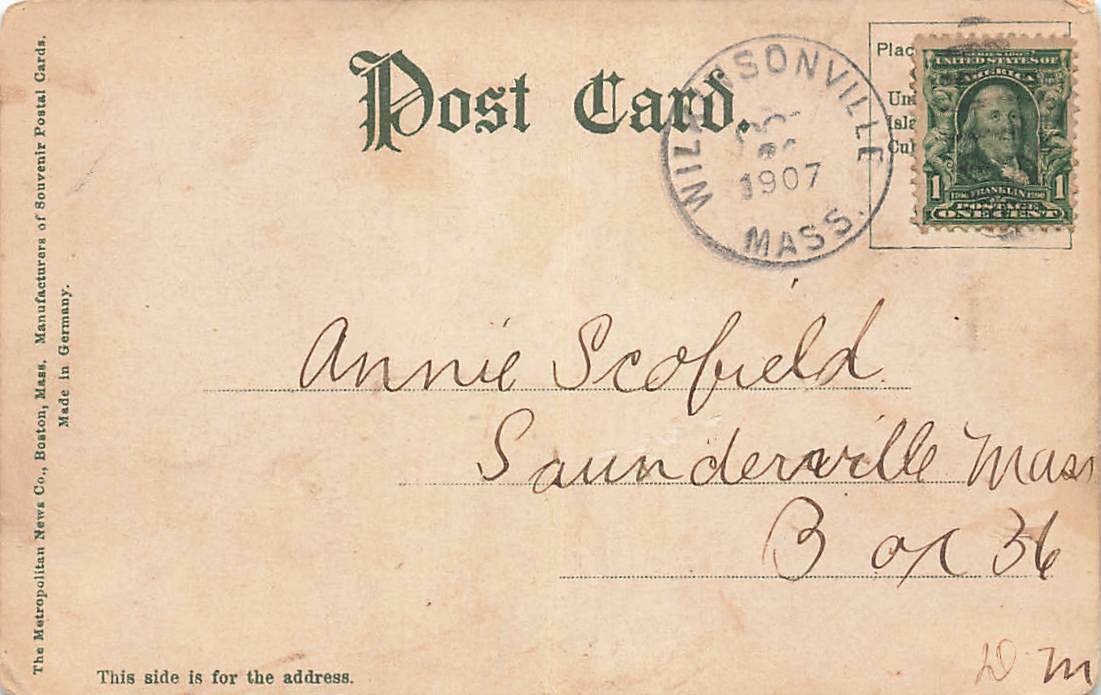 Post Card.
WILKINSONVILLE
1907
MASS.
Plac
Un
Isla
Cu
SERIES 1902
UNITED STATES OF
AMERICA
1 1
1706 FRANKLIN 1790
POSTAGE
ONE CENT
Annie Scofield
Saunderville Mass
Box 36
D M
This side is for the address.
The Metropolitan News Co., Boston, Mass. Manufacturers of Souvenir Postal Cards.
Made in Germany.